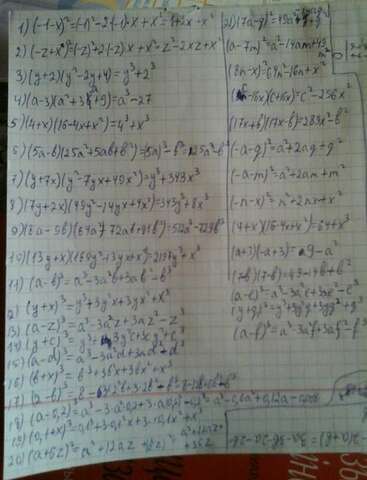 1) (-1-x)² = (-1)²-2·(-1)·x + x² = 1+2x-x²
2) (-z+x)² = (-z)²+2(-z)·x + x² = z²-2xz+x²
3) (y+2)(y²-2y+4) = y³+2³
4) (a-3)(a²+3a+9) = a³-27
5) (4+x)(16-4x+x²) = 4³+x³
6) (5a-b)(25a²+5ab+b²) = (5a)³-b³ = 125a³-b³
7) (y+7x)(y²-7yx+49x²) = y³+343x³
8) (7y+2x)(49y²-14yx+4x²) = 343y³+8x³
9) (8a-9b)(64a²+72ab+81b²) = 512a³-729b³
10) (13y+x)(169y²-13yx+x²) = 2197y³+x³
11) (a-b)³ = a³-3a²b+3ab²-b³
12) (y+x)³ = y³+3y²x+3yx²+x³
13) (a-z)³ = a³-3a²z+3az²-z³
14) (y+c)³ = y³+3y²c+3yc²+c³
15) (a-d)³ = a³-3a²d+3ad²+d³
16) (b+x)³ = b³+3b²x+3bx²+x³
17) (2-b)³ =
18) (a-0,2)³ = a³-3·a²·0,2+3·a·0,2²
19) (0,1+x)³ =
20) (a+6z)² = a²+12az
21) (7a-g)² = 49a²
(a-7m)² = a²-14am+49
(8n-x)² = 64n²-16n+x²
-16x)(c+16x) = c²-256x²
(17x+b)(17x-b) = 289x²-b²
(-a-g)² = a²+2ag+g²
(-a-m)² = a²+2am+m²
(-n-x)² = n²+2nx+x²
(4+x)(16-4x+x²) = 64+x³
(a+3)(-a+3) = 9-a²
(a-c)³ = a³-3a²c+3ac²-c³
(y+g)³ = y³+3y²g+3yg²+g³
(a-f)³ = a³-3a²f+3af²-f³